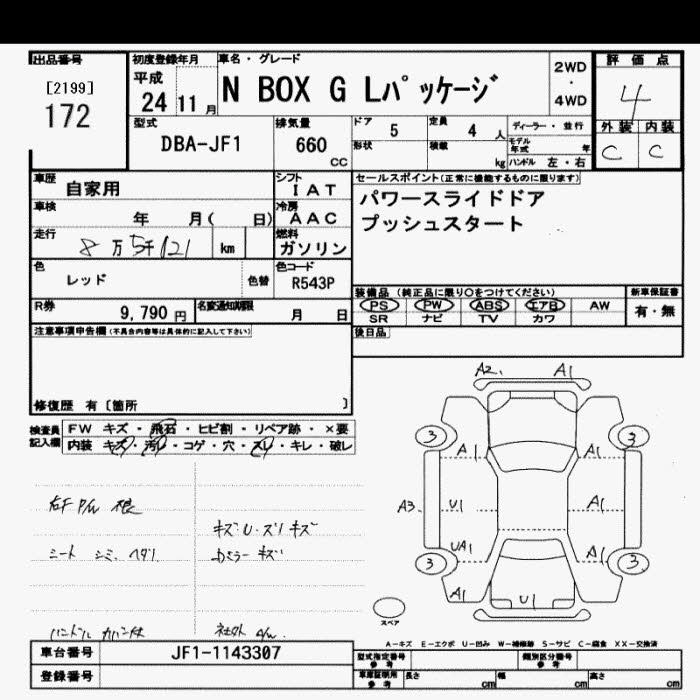 出品番号
[2199]
172
初度登録年月
平成
24 11 月
車名・グレード
N BOX G Lパッケージ
2WD
・
4WD
評価点
4
外装 内装
C C
型式
DBA-JF1
排気量
660
CC
ドア
5
定員
4 人
ディーラー・並行
形状
積載
kg
モデル年式
年
ハンドル 左・右
車歴
自家用
シフト
IAT
車検
年 月( 日)
冷房
AAC
走行
8万5千121 km
燃料
ガソリン
色
レッド
色替
色コード
R543P
R券
9,790 円
名変通知期限
月 日
セールスポイント(正常に機能するものに限ります)
パワースライドドア
プッシュスタート
装備品 (純正品に限り○をつけてください)
PS PW ABS エアB AW
SR ナビ TV カワ
新車保証書
有・無
後日品
注意事項申告欄 (不具合内容等は具体的に記入して下さい)
修復歴 有〔箇所 〕
検査員
記入欄
FW キズ・飛石・ヒビ割・リペア跡・×要
内装 キズ・汚レ・コゲ・穴・スレ・キレ・破レ
右F P/W
キズU・スリキズ
シート シミ、ヘタリ
カミラー キズ
ハンドル
社外 A/W
A2. A1
3 3
A1 A1
A3 U1 A1
UA1 A1
3 3
A1 U1
スペア
A-キズ E-エクボ U-凹み W-補修跡 S-サビ C-腐食 XX-交換済
車台番号
JF1-1143307
登録番号
型式指定番号
参考
類別区分番号
参考
車庫証明用
参考
長さ
cm
幅
cm
高さ
cm